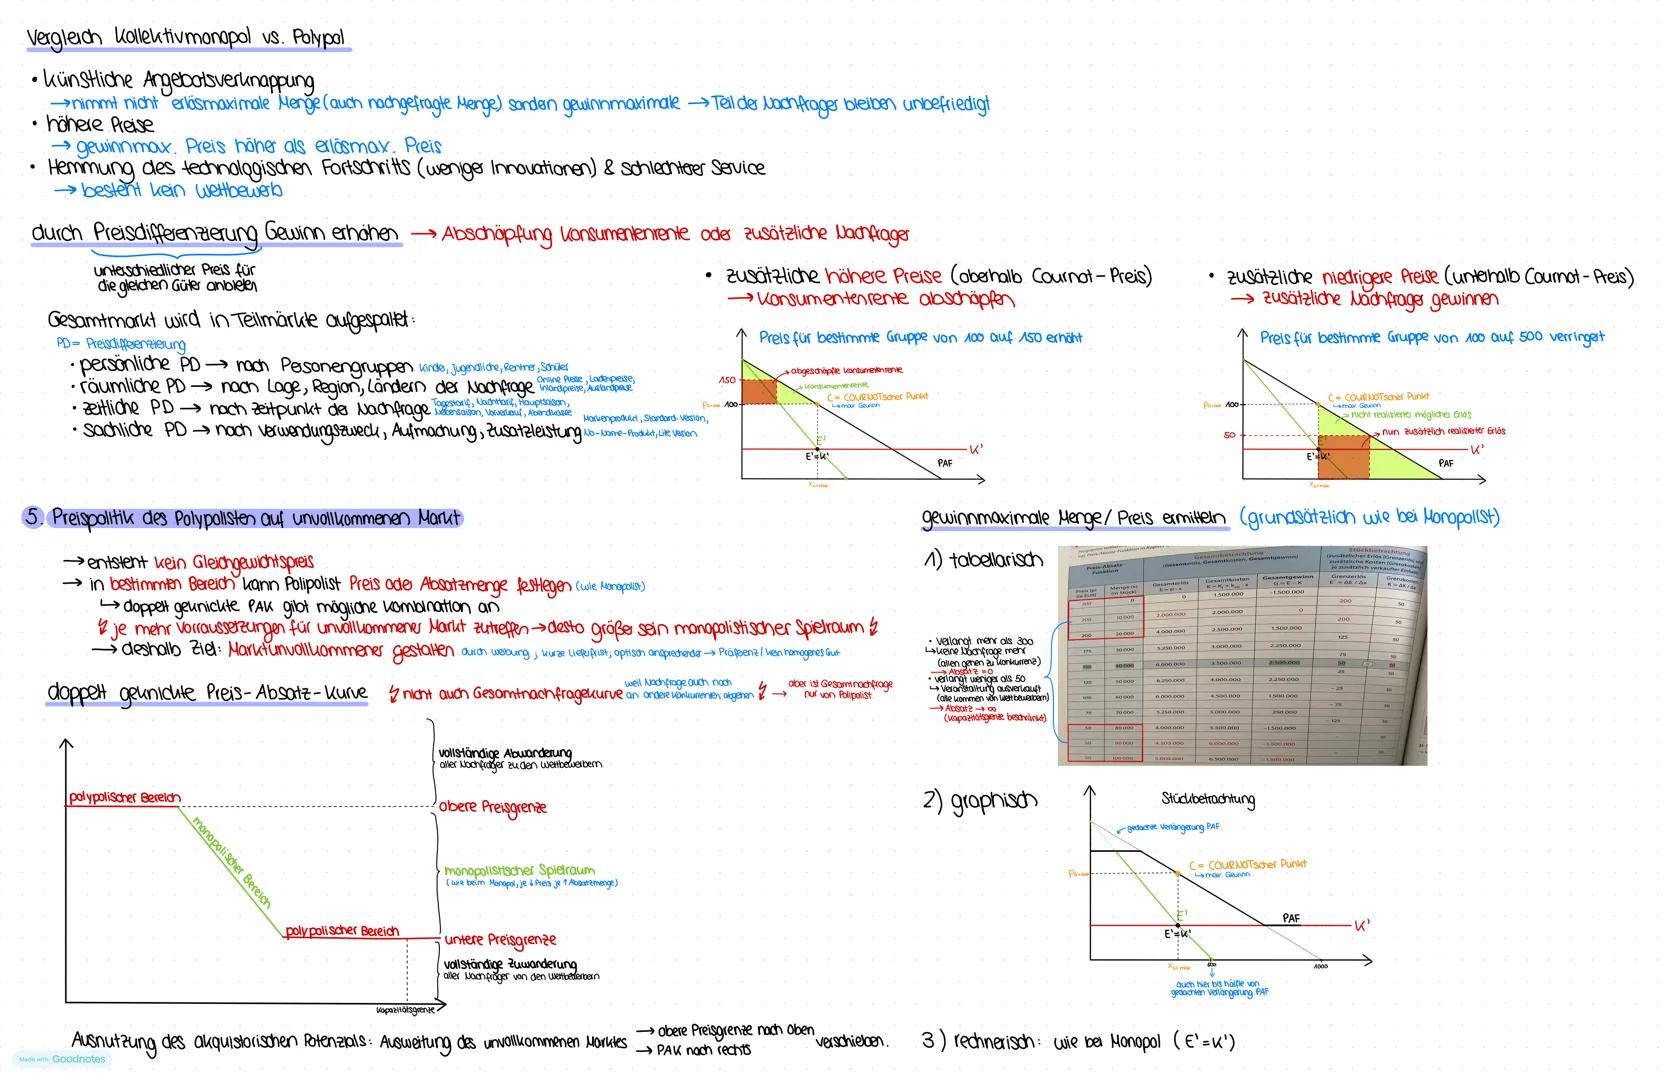 Vergleich Kollektivmonopol vs. Polypol
• künstliche Angebotsverknappung
→ nimmt nicht erlösmaximale Menge (auch nachgefragte Menge) sondern gewinnmaximale → Teil der Nachfrager bleiben unbefriedigt
• höhere Preise
→ gewinnmax. Preis höher als erlösmax. Preis
• Hemmung des technologischen Fortschritts (weniger Innovationen) & schlechterer Service
→ besteht kein Wettbewerb
durch Preisdifferenzierung Gewinn erhöhen → Abschöpfung Konsumentenrente oder zusätzliche Nachfrager
unterschiedlicher Preis für
die gleichen Güter anbieten
Gesamtmarkt wird in Teilmärkte aufgespaltet:
PD = Preisdifferenzierung
• persönliche PD → nach Personengruppen Kinder, Jugendliche, Rentner, Schüler
• räumliche PD → nach Lage, Region, Ländern der Nachfrage Online Preise, Ladenpreise,
Inlandpreise, Auslandpreise
• zeitliche PD → nach Zeitpunkt der Nachfrage Tagestarif, Nachttarif, Hauptsaison,
Nebensaison, Vorverkauf, Abendkasse
• sachliche PD → nach Verwendungszweck, Aufmachung, Zusatzleistung Markenprodukt, Standard-Version,
No-Name-Produkt, Lite Version
• zusätzliche höhere Preise (oberhalb Cournot-Preis)
→ Konsumentenrente abschöpfen
Preis für bestimmte Gruppe von 100 auf 150 erhöht
150
abgeschöpfte Konsumentenrente
Konsumentenrente
100
C = COURNOTscher Punkt
↳ max. Gewinn
E'
E'=K'
K'
PAF
• zusätzliche niedrigere Preise (unterhalb Cournot-Preis)
→ zusätzliche Nachfrager gewinnen
Preis für bestimmte Gruppe von 100 auf 500 verringert
100
C = COURNOTscher Punkt
↳ max. Gewinn
= nicht realisierter möglicher Erlös
50
nun zusätzlich realisierter Erlös
E'=K'
K'
PAF
5. Preispolitik des Polypolisten auf unvollkommenen Markt
→ entsteht kein Gleichgewichtspreis
→ in bestimmten Bereich kann Polipolist Preis oder Absatzmenge festlegen (wie Monopolist)
↳ doppelt geknickte PAK gibt mögliche Kombination an
↯ je mehr Vorraussetzungen für unvollkommener Markt zutreffen → desto größer sein monopolistischer Spielraum ↯
→ deshalb Ziel: Marktunvollkommener gestalten durch Werbung, kurze Lieferfrist, optisch ansprechender → Präferenz / kein homogenes Gut
doppelt geknickte Preis-Absatz-Kurve ↯ nicht auch Gesamtnachfragekurve weil Nachfrage auch noch
an andere Konkurrenten abgehen ↯ → aber ist Gesamtnachfrage
nur von Polipolist
polypolischer Bereich
monopolischer Bereich
polypolischer Bereich
vollständige Abwanderung
aller Nachfrager zu den Wettbewerbern
obere Preisgrenze
monopolistischer Spielraum
(wie beim Monopol, je ↓ Preis je ↑ Absatzmenge)
untere Preisgrenze
vollständige Zuwanderung
aller Nachfrager von den Wettbewerbern
Kapazitätsgrenze
Ausnutzung des akquistorischen Potenzials: Ausweitung des unvollkommenen Marktes → obere Preisgrenze nach oben
→ PAK nach rechts
verschieben.
gewinnmaximale Menge/ Preis ermitteln (grundsätzlich wie bei Monopolist)
1) tabellarisch
• verlangt mehr als 300
↳ keine Nachfrage mehr
(allen gehen zu Konkurrenz)
→ Absatz = 0
• verlangt weniger als 50
↳ Veranstaltung ausverkauft
(alle kommen von Wettbewerbern)
→ Absatz → ∞
(Kapazitätsgrenze beschränkt)
Preis-Absatz-
Funktion
Gesamtbetrachtung
(Gesamterlös, Gesamtkosten, Gesamtgewinn)
Stückbetrachtung
Gesamterlös
E = p · x
Gesamtkosten
Gesamtgewinn
G = E − K
Grenzerlös
E' = ΔE / Δx
2) graphisch
Stückbetrachtung
gedachte Verlängerung PAF
C = COURNOTscher Punkt
↳ max. Gewinn
E'
E'=K'
PAF
K'
500
1000
auch hier bis hälfte von
gedachten Verlängerung PAF
3) rechnerisch: wie bei Monopol (E'=K')
Made with Goodnotes